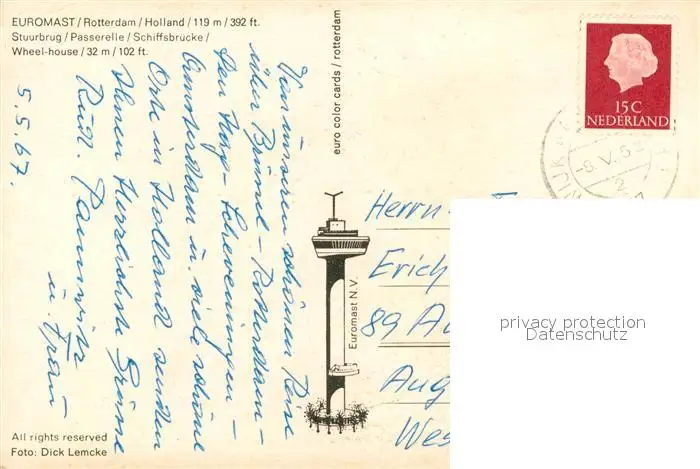 EUROMAST / Rotterdam / Holland / 119 m / 392 ft.
Stuurbrug / Passerelle / Schiffsbrücke /
Wheel-house / 32 m / 102 ft.
5.5.67.
Von unserer schönen Reise
über Brüssel - Rotterdam -
Den Haag - Scheveningen -
Amsterdam u. viele schöne
Orte in Holland senden
Ihnen Herzlichste Grüsse
Rud.
u. Frau
euro color cards / rotterdam
Euromast N.V.
15 C
NEDERLAND
Herrn
Erich
89 Au
Aug
Wes
privacy protection
Datenschutz
All rights reserved
Foto: Dick Lemcke